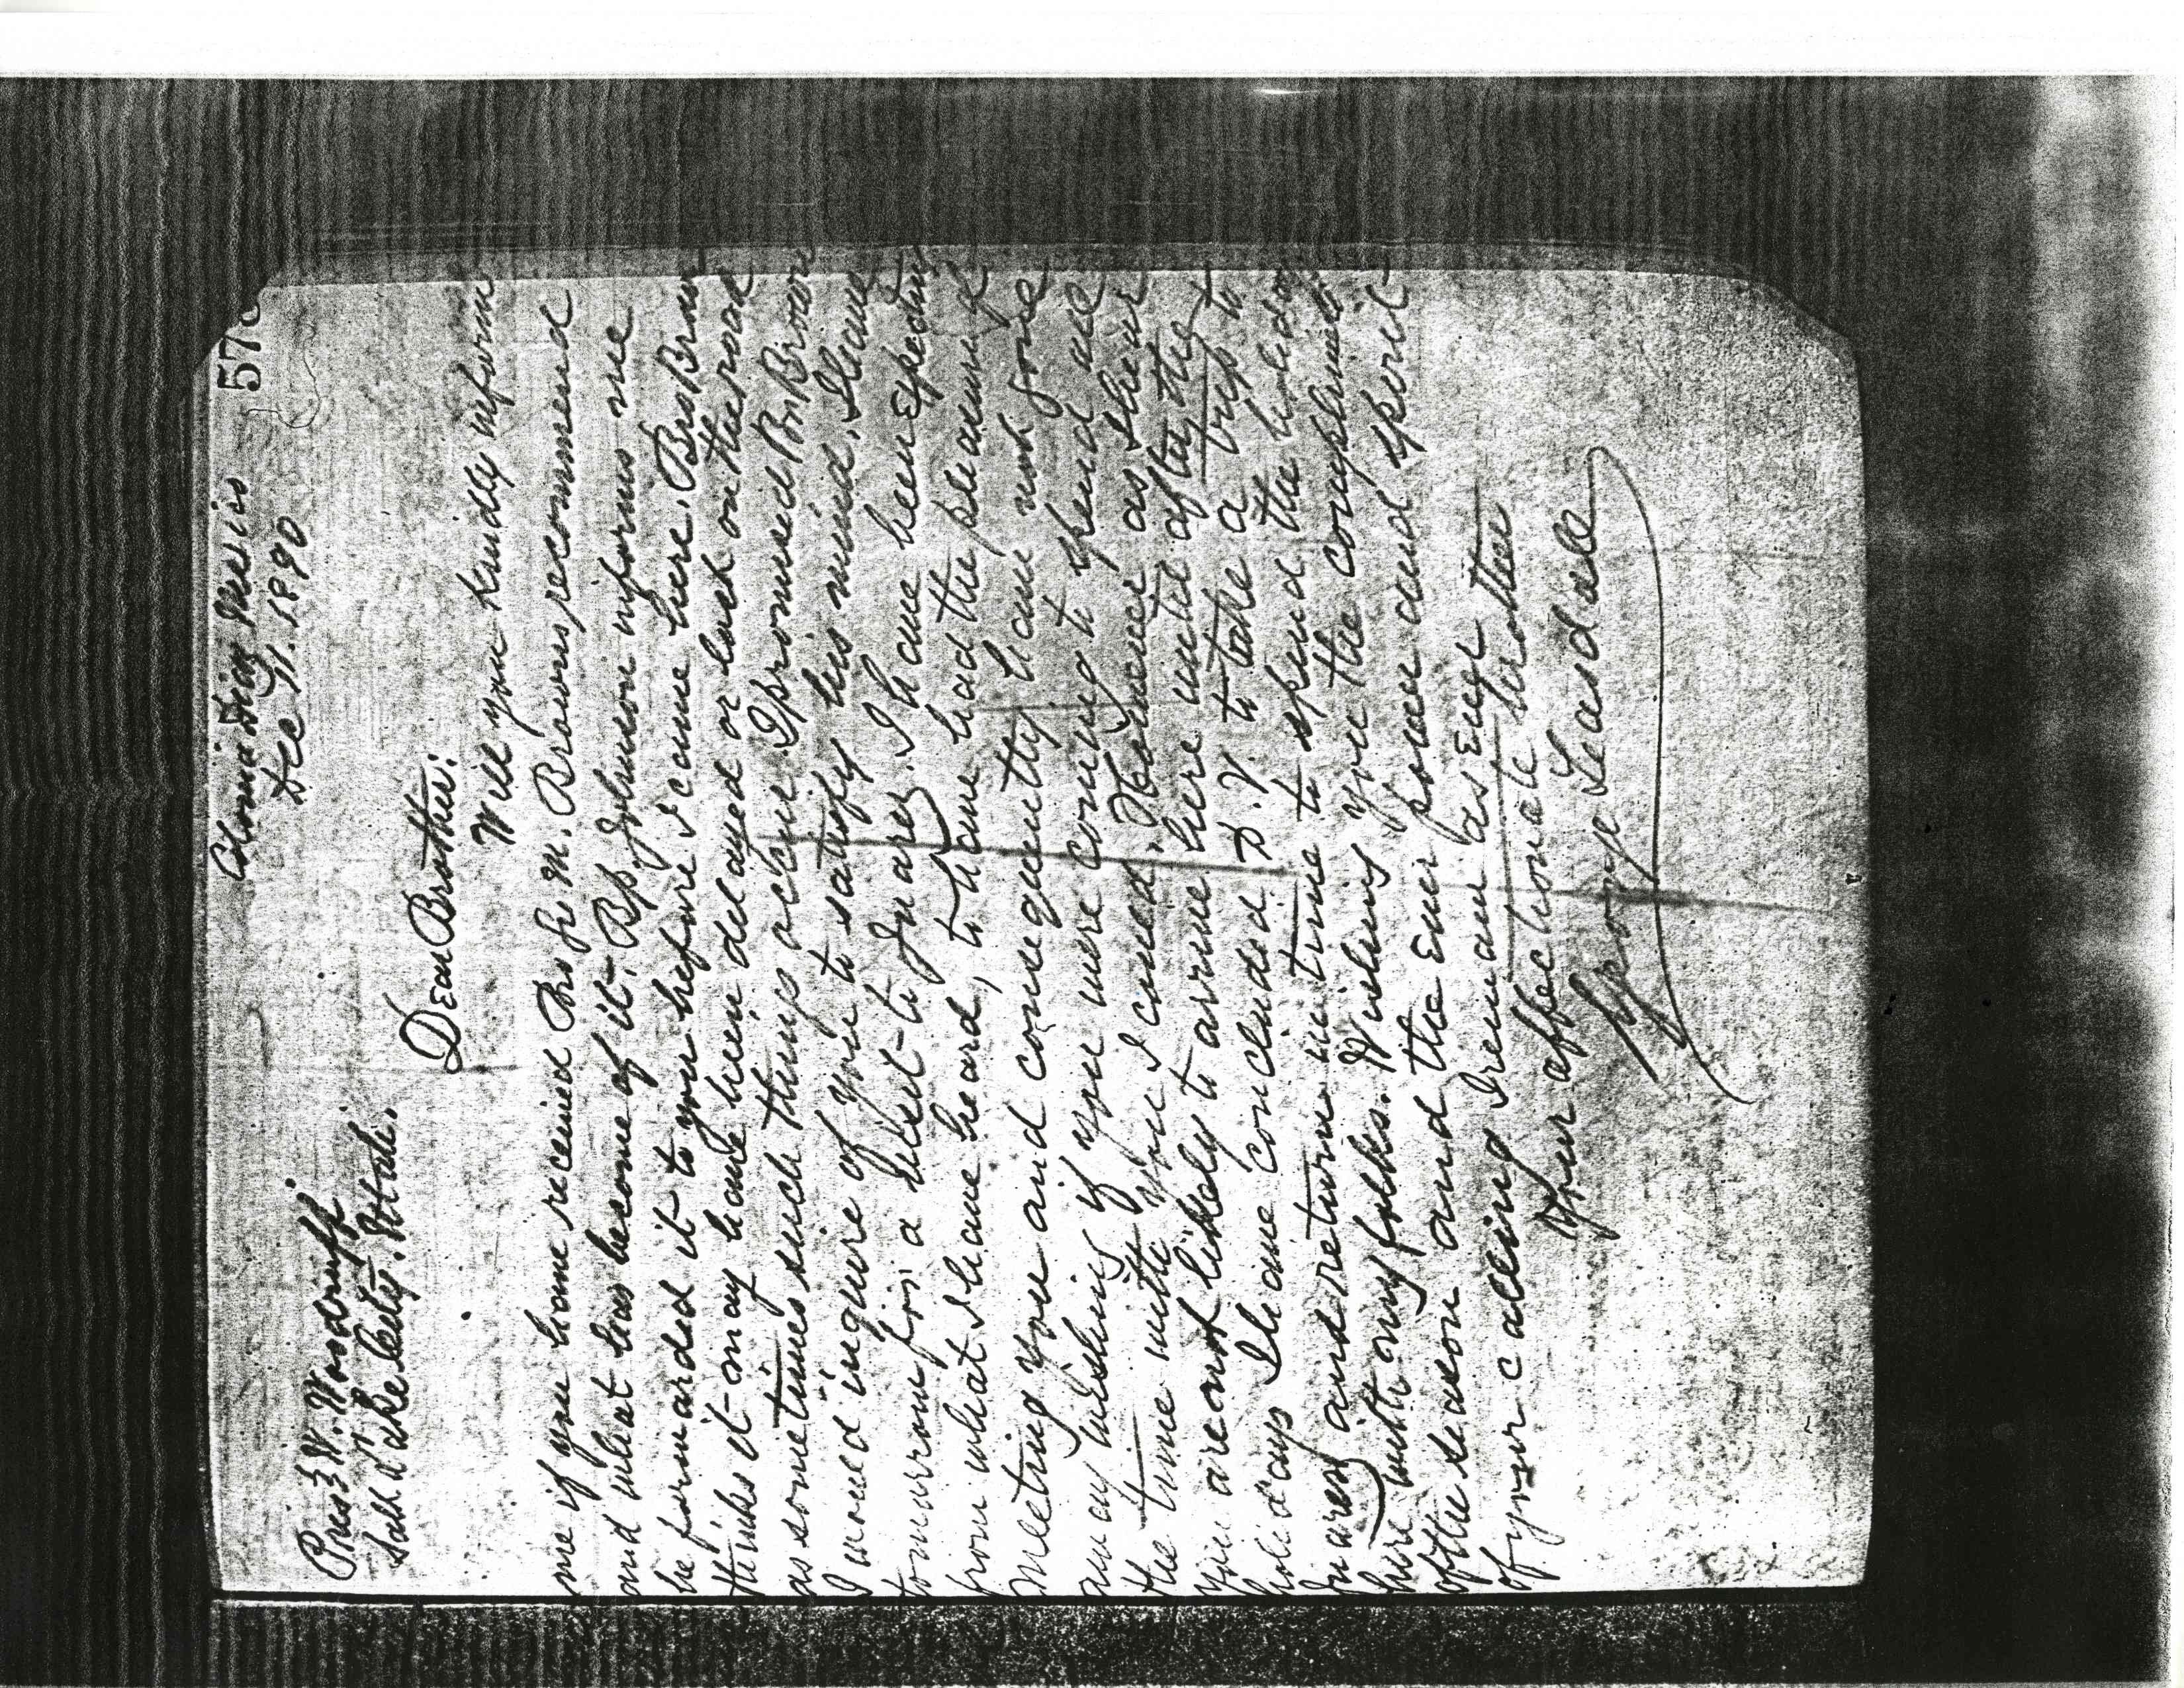 Colonia Diaz Mexico 57
Dec 11. 1890
Prest W. Woodruff.
Salt Lake City. Utah.
Dear Brother:
Will you kindly inform
me if you have received Bro Jo M. Browns, recommend
and what has become of it. Bp. Johnson informs me
he forwarded it to you before I came here. Bro Brown
thinks it may have been delayed or lost on the road
as sometimes such things occur. I promised Br Brown
I would inquire of you to satisfy his mind. I leave
tomorrow for a visit to Juarez. I have been expecting
from what I have heard, to have had the pleasure of
meeting you and consequently have not gone
away wishing if you were coming to spend all
the time with you I could. However as
you are not likely to arrive here until after the
holidays I have concluded D.V. to take a trip to
Juarez and return in time to spend the holidays
here with my folks. Wishing you the compliments
of the season and the power and spirit
of your calling I remain as ever
Your affectionate brother
George Teasdale